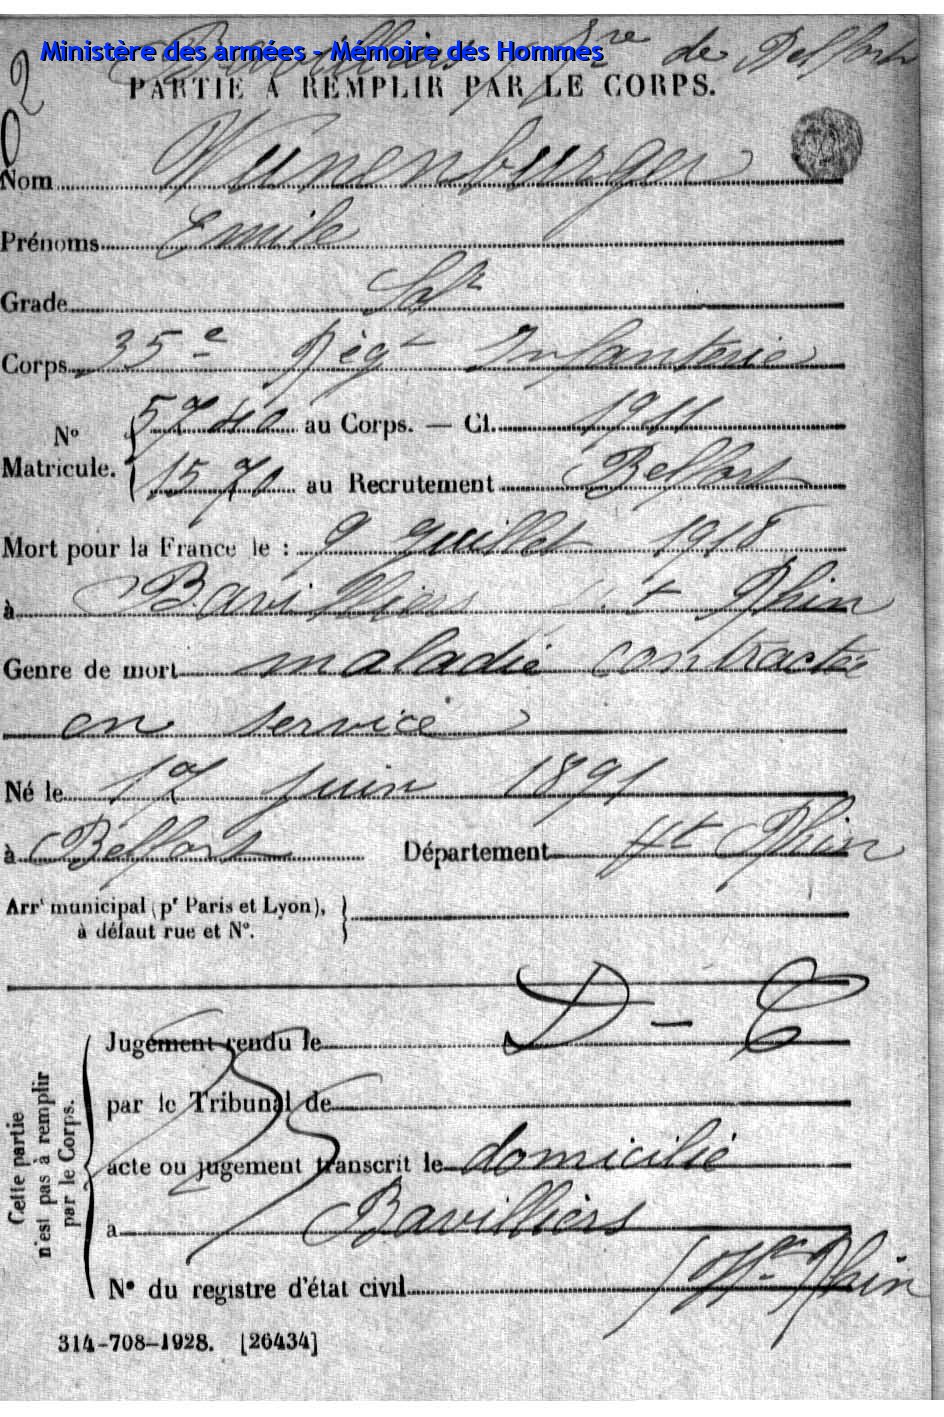 Ministère des armées - Mémoire des Hommes
Bavilliers Tre de Belfort
PARTIE À REMPLIR PAR LE CORPS.
Nom Wunenburger
Prénoms Emile
Grade
Corps 35e Régt Infanterie
No Matricule. { 5740 au Corps. — Cl. 1911
1570 au Recrutement Belfort
Mort pour la France le : 9 Juillet 1918
à Bavilliers Ht Rhin
Genre de mort maladie contractée
en service
Né le 17 juin 1891
à Belfort Département Ht Rhin
Arrt municipal (pr Paris et Lyon), à défaut rue et No. }
D - C
Jugement rendu le
par le Tribunal de
acte ou jugement transcrit le domicilié
à Bavilliers
No du registre d'état civil Rhin
Cette partie n'est pas à remplir par le Corps.
314-708-1928. [26434]